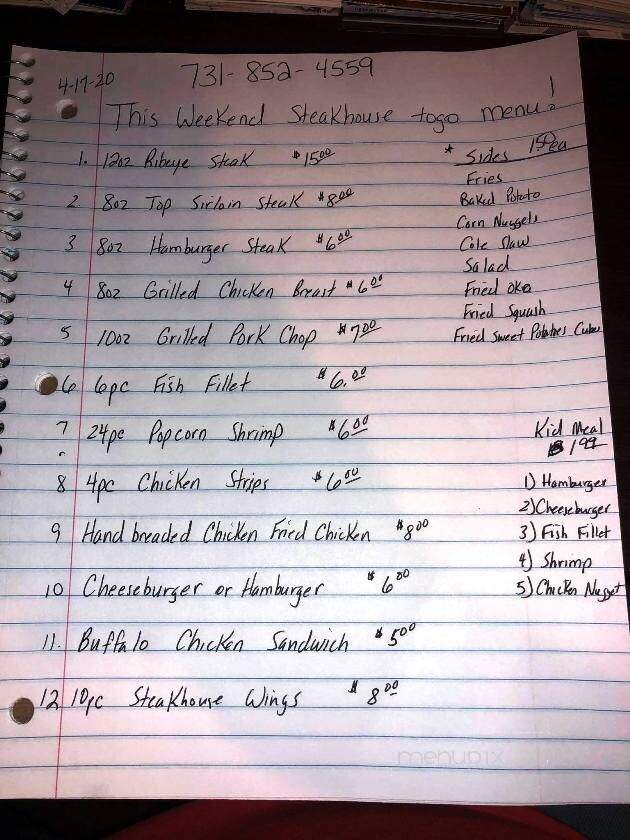 4-17-20
731-852-4559
This Weekend Steakhouse togo menu!
1. 12oz Ribeye Steak $15.00
2 8oz Top Sirloin Steak $8.00
3 8oz Hamburger Steak $6.00
4 8oz Grilled Chicken Breast $6.00
5 10oz Grilled Pork Chop $7.00
6. 6pc Fish Fillet $6.00
7 24pc Popcorn Shrimp $6.00
8 4pc Chicken Strips $6.00
9 Hand breaded Chicken Fried Chicken $8.00
10 Cheeseburger or Hamburger $6.00
11. Buffalo Chicken Sandwich $5.00
12 10pc Steakhouse Wings $8.00
* Sides
Fries
Baked Potato
Corn Nuggets
Cole Slaw
Salad
Fried Okra
Fried Squash
Fried Sweet Potatoes Cubes
Kid Meal
$1.99
1) Hamburger
2) Cheeseburger
3) Fish Fillet
4) Shrimp
5) Chicken Nugget
menupix